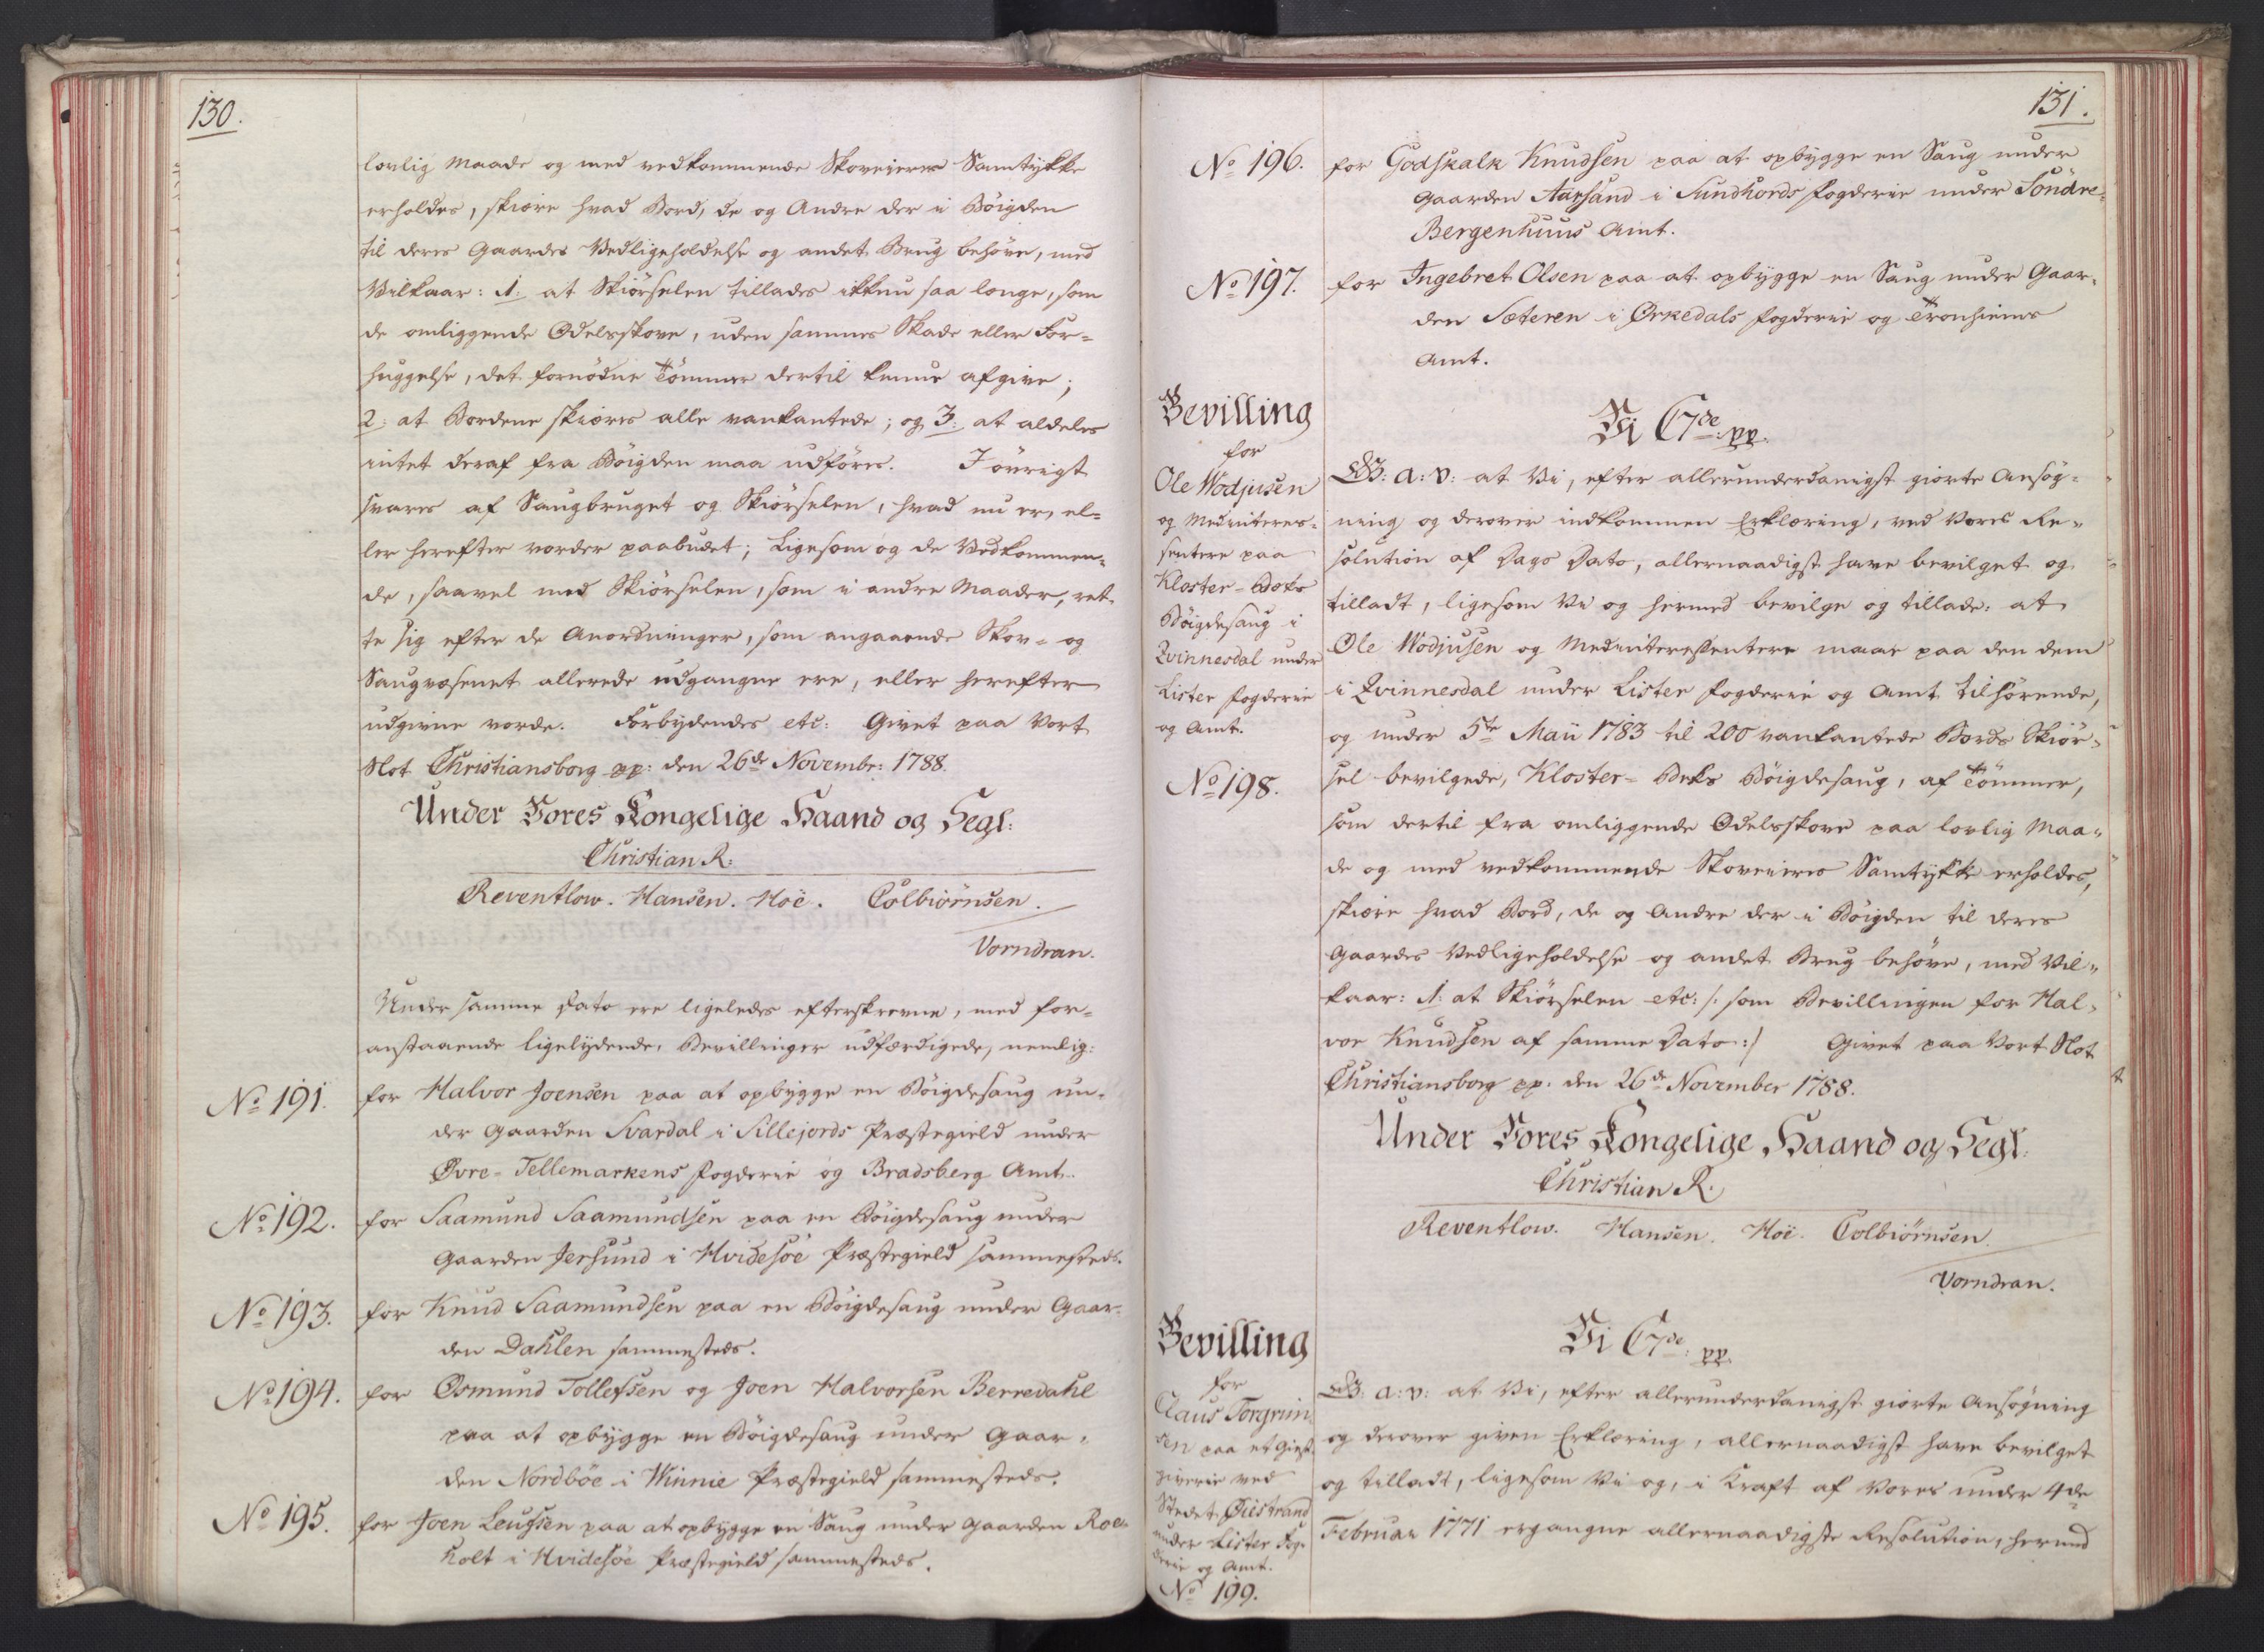 130.
lovlig Maade og med vedkommende Skoveieres Samtykke
erholdes, skiære hvad Bord, de og Andre der i Böigden
til deres Gaardes Vedligeholdelse og andet Brug behöve, med
Vilkaar: 1: at Skiörselen tillades ikkun saa længe, som
de omliggende Odelsskove, uden sammes Skade eller For-
huggelse, det fornödne Tömmer dertil kunne afgive;
2: at Bordene skiæres alle vankantede; og 3: at aldeles
intet deraf fra Böigden maa udföres. I övrigt
svares af Saugbruget og Skiörselen, hvad nu er, el-
ler herefter vorder paabudet; Ligesom og de Vedkommen-
de, saavel med Skiörselen, som i andre Maader, ret-
te sig efter de Anordninger, som angaaende Skov- og
Saugvæsenet allerede udgangne ere, eller herefter
udgivne vorde. Forbydendes etc: Givet paa Vort
Slot Christiansborg pp: den 26de Novembr: 1788.
Under Vores Kongelige Haand og Segl:
Christian R:
Reventlow. Hansen. Hoë. Colbiörnsen.
Vorndran.
Under samme Dato ere ligeledes efterskrevne, med for-
anstaaende ligelydende, Bevillinger udfærdigede, nemlig:
No 191. for Halvor Joensen paa at opbygge en Böigdesaug un-
der Gaarden Svardal i Sillejords Præstegield under
Övre-Tellemarkens Fogderie og Bradsberg Amt.
No 192. for Saamund Saamundsen paa en Böigdesaug under
Gaarden Jersund i Hvidesöe Præstegield sammesteds.
No 193. for Knud Saamundsen paa en Böigdesaug under Gaar-
den Dahlen sammesteds.
No 194. for Osmund Tollefsen og Joen Halvorsen Berredahl
paa at opbygge en Böigdesaug under Gaar-
den Nordböe i Winnie Præstegield sammesteds.
No 195. for Joen Leufsen paa at opbygge en Saug under Gaarden Roe-
holt i Hvidesöe Præstegield sammesteds.
131.
No 196. for Godskalk Knudsen paa at opbygge en Saug under
Gaarden Aarsand i Sundhords Fogderie under Söndre-
Bergenhuus Amt.
No 197. for Ingebret Olsen paa at opbygge en Saug under Gaar-
den Sæteren i Örkedals Fogderie og Tronhiems
Amt.
Bevilling
for
Ole Wodjusen
og Medinteres-
sentere paa
Kloster-Beks
Böigdesaug i
Qvinnesdal under
Lister Fogderie
og Amt.
No 198.
Vi C7de: pp.
G: A: V: at Vi, efter allerunderdanigst giorte Ansög-
ning og derover indkommen Erklæring, ved Vores Re-
solution af Dags Dato, allernaadigst have bevilget og
tilladt, ligesom Vi og hermed bevilge og tillade: at
Ole Wodjusen og Medinteressentere maae paa den dem
i Qvinnesdal under Lister Fogderie og Amt tilhörende,
og under 5te Maii 1783 til 200 vankantede Bords Skiör-
sel bevilgede, Kloster-Beks Böigdesaug, af Tömmer,
som dertil fra omliggende Odelsskove paa lovlig Maa-
de og med vedkommende Skoveieres Samtykke erholdes,
skiære hvad Bord, de og Andre der i Böigden til deres
Gaardes Vedligeholdelse og andet Brug behöve, med Vil-
kaar: 1: at Skiörselen etc: /: som Bevillingen for Hal-
vor Knudsen af samme Dato :/ Givet paa Vort Slot
Christiansborg pp. den 26de November 1788.
Under Vores Kongelige Haand og Segl:
Christian R.
Reventlow. Hansen. Hoë. Colbiörnsen.
Vorndran.
Bevilling
for
Claus Torgrim-
sen paa et Giest-
giverie ved
Stedet Öiestrand
under Lister Fog-
derie og Amt.
No 199.
Vi C7de: pp.
G: A: V: at Vi, efter allerunderdanigst giorte Ansögning
og derover given Erklæring, allernaadigst have bevilget
og tilladt, ligesom Vi og, i Kraft af Vores under 4de
Februar 1771 ergangne allernaadigste Resolution, hermed